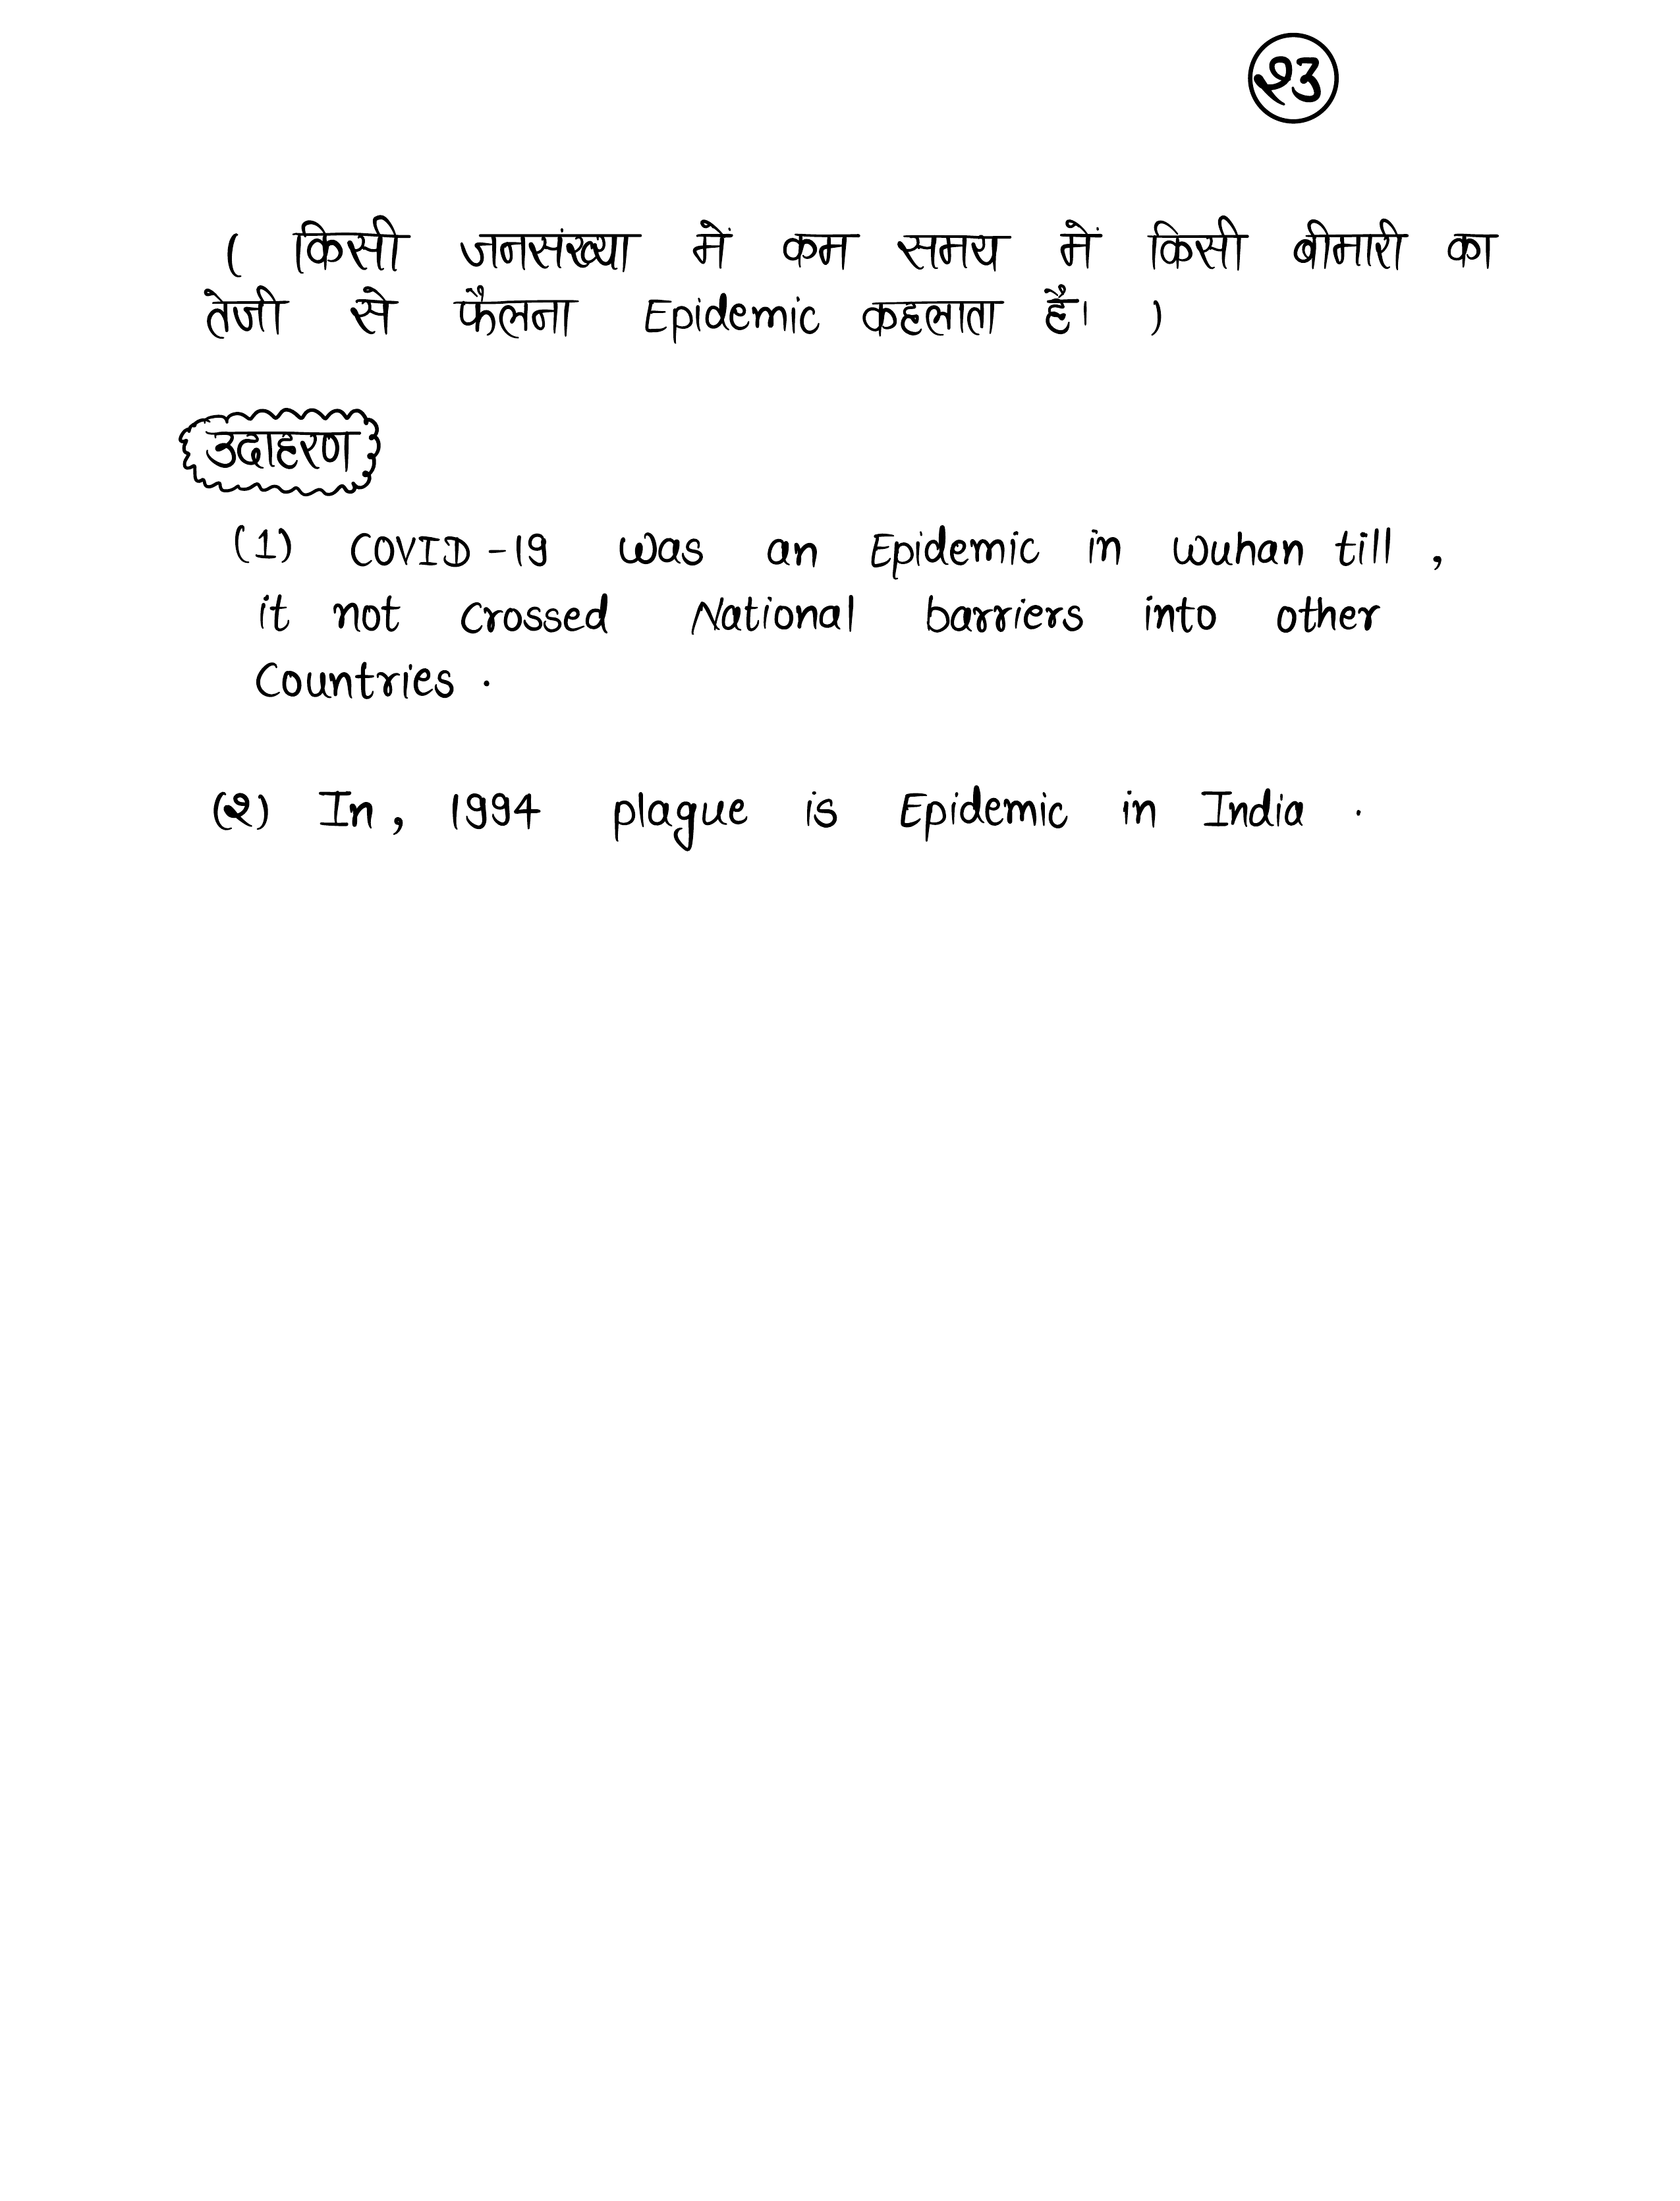 २३
( किसी जनसंख्या में कम समय में किसी बीमारी का
तेजी से फैलना Epidemic कहलाता है। )
उदाहरण
(1) COVID-19 was an Epidemic in Wuhan till ,
it not crossed National barriers into other
Countries .
(२) In, 1994 plague is Epidemic in India .